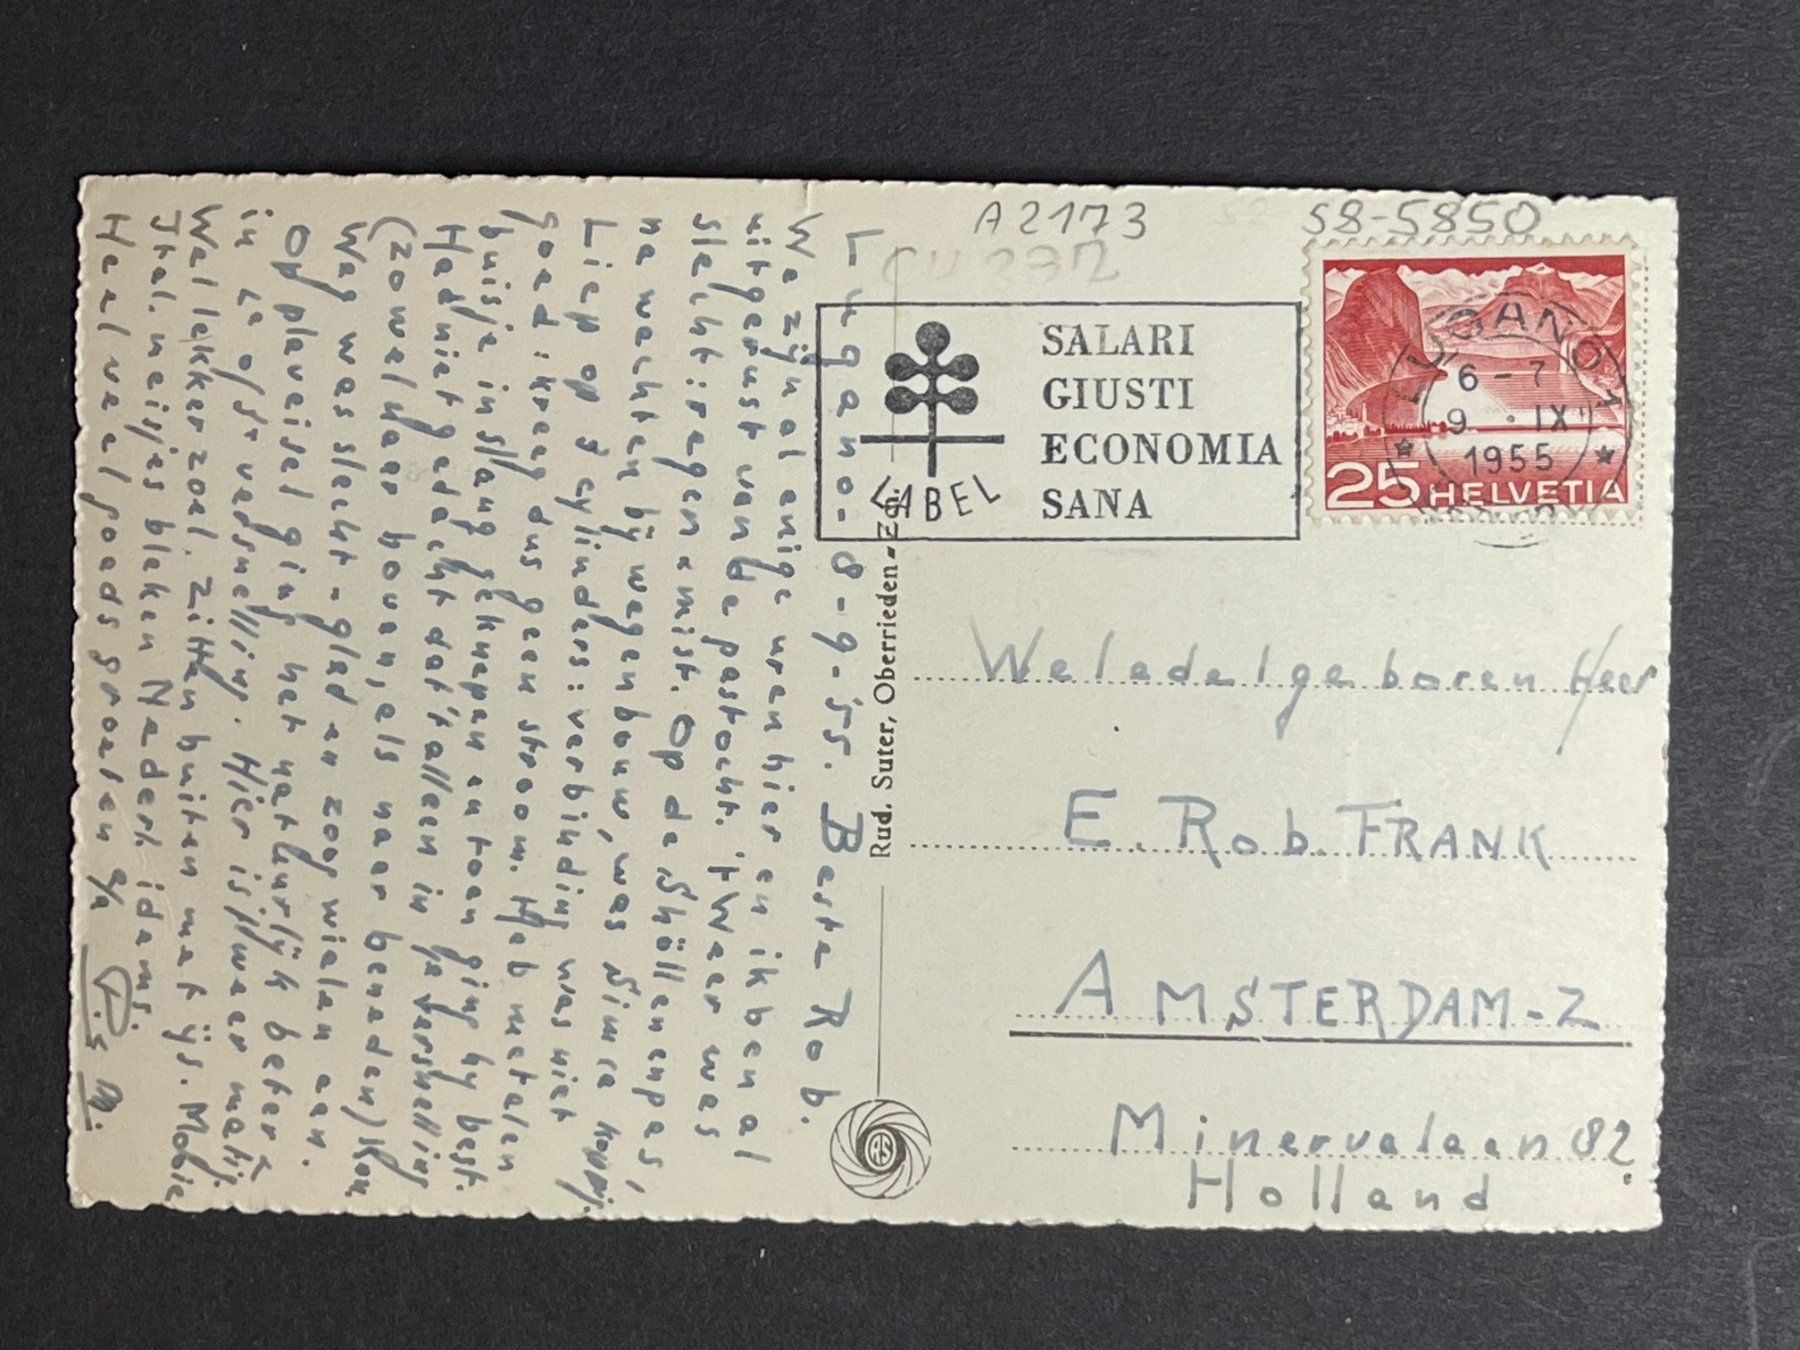 A2173
58-5850
SALARI
GIUSTI
ECONOMIA
SANA
LABEL
LUGANO 1
6-7
9. IX
1955
25 HELVETIA
Lugano-8-9-55. Beste Rob.
We zÿn al enige uren hier en ik ben al
uitgerust van de pastocht. 't Weer was
slecht: regen en mist. Op de Schöllenenpas,
na wachten bÿ wegenbouw, was Simca
Liep op 3 cylinders: verbinding was niet
goed: kreeg dus geen stroom. Heb metalen
buisje in slang geknepen en toen ging hy best.
Had niet gedacht dat 't alleen in 1e versnelling
(zowel naar boven, als naar beneden) kon.
Weg was slecht - glad en zoog wielen aan.
Op plaveisel ging het natuurlÿk beter
in 2e of 3e versnelling. Hier is 't weer matig.
Wel lekker zoel. Zitten buiten met ÿs. Mooie
Ital. meisjes bleken Nederl. idems.
Heel veel goeds groeten v/h
Rud. Suter, Oberrieden-Zch.
RS
Weledelgeboren Heer
E. Rob. FRANK
AMSTERDAM-Z
Minervalaan 82.
Holland